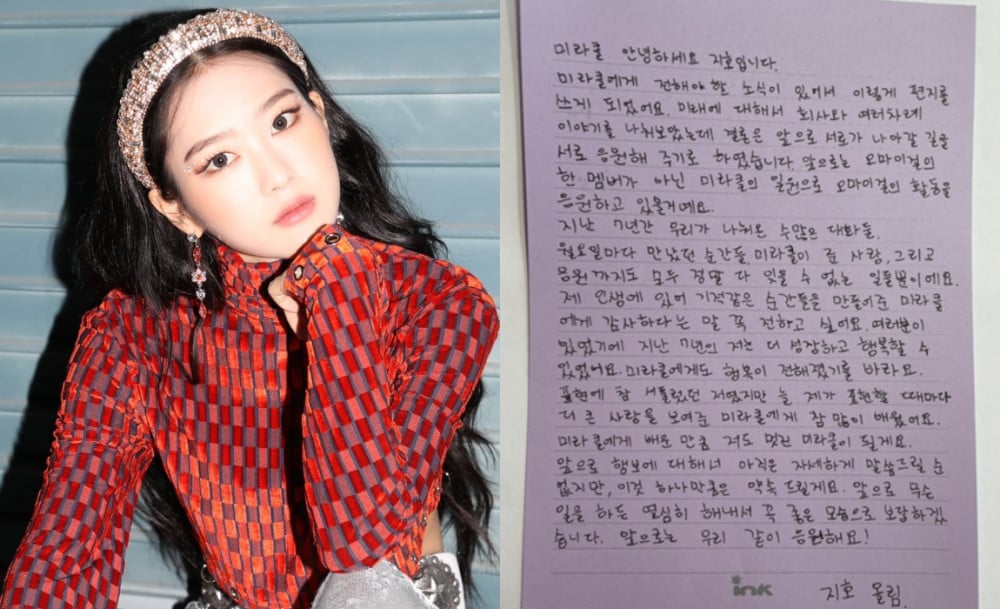 미라클 안녕하세요 지호입니다.
미라클에게 전해야할 소식이 있어서 이렇게 편지를
쓰게 되었어요. 미래에 대해서 회사와 여러차례
이야기를 나눠보았는데 결론은 앞으로 서로가 나아갈 길을
서로 응원해 주기로 하였습니다. 앞으로는 오마이걸의
한 멤버가 아닌 미라클의 일원으로 오마이걸의 활동을
응원하고 있을거예요.
지난 7년간 우리가 나눠온 수많은 대화들.
월요일마다 만났던 순간들, 미라클이 준 사랑, 그리고
응원까지도 모두 정말 다 잊을 수 없는 일들뿐이에요.
제 인생에 있어 기적같은 순간들을 만들어준 미라클
에게 감사하다는 말 꼭 전하고 싶어요. 여러분이
있었기에 지난 7년의 저는 더 성장하고 행복할 수
있었어요. 미라클에게도 행복이 전해졌기를 바라요.
표현에 참 서툴렀던 저였지만 늘 제가 표현할 때마다
더 큰 사랑을 보여준 미라클에게 참 많이 배웠어요.
미라클에게 배운 만큼 저도 멋진 미라클이 될게요.
앞으로 행보에 대해서 아직은 자세하게 말씀드릴 순
없지만, 이것 하나만큼은 약속 드릴게요. 앞으로 무슨
일을 하든 열심히 해내서 꼭 좋은 모습으로 보답하겠
습니다. 앞으로는 우리 같이 응원해요!
ink 지호 올림